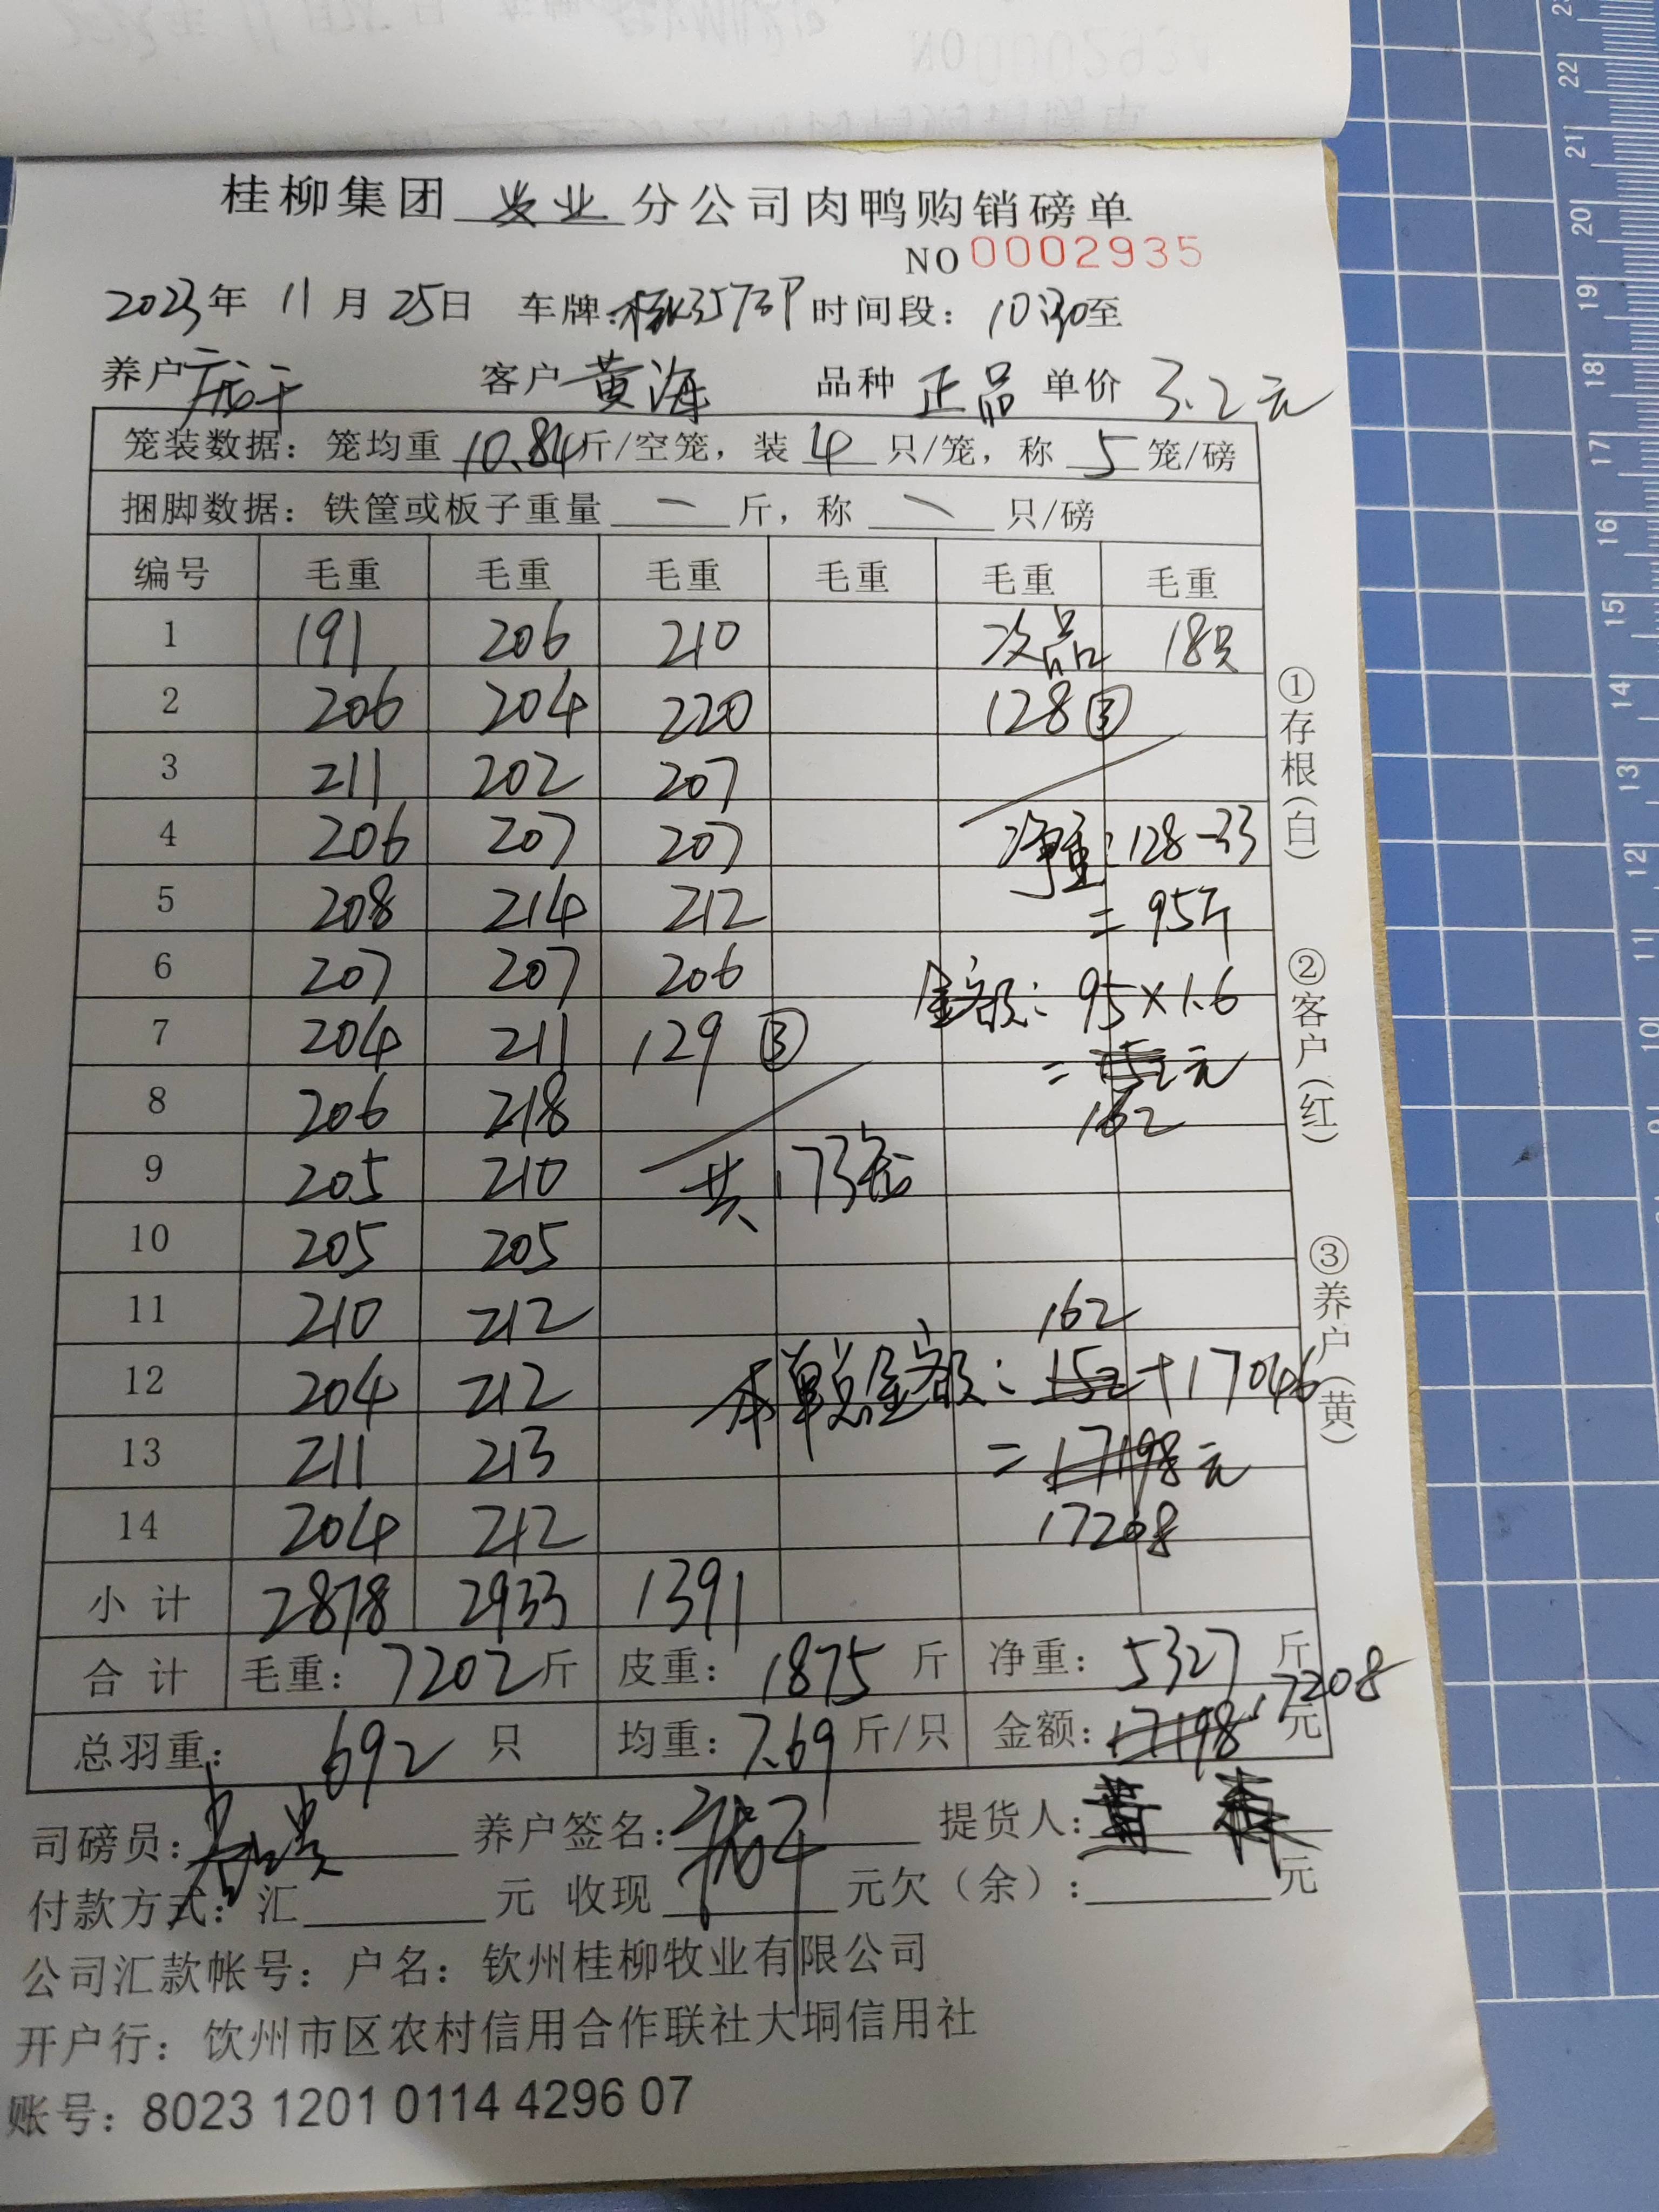 桂柳集团 农业 分公司肉鸭购销磅单
NO 0002935
2023年 11月 25日 车牌: 3573P 时间段: 10:30至
养户 客户 黄海 品种 正品 单价 3.2元
笼装数据: 笼均重 10.84 斤/空笼, 装 4 只/笼, 称 5 笼/磅
捆脚数据: 铁筐或板子重量 — 斤, 称 — 只/磅
编号 毛重 毛重 毛重 毛重 毛重 毛重
1 191 206 210 次品 18只
2 206 204 220 128③
3 211 202 207
4 206 207 207 净重: 128-33
5 208 214 212 = 95斤
6 207 207 206 金额: 95×1.6
7 204 211 129③ = 152元
8 206 218 162
9 205 210 共173笼
10 205 205
11 210 212 162
12 204 212 本单总金额: 152+17046
13 211 213 = 17198元
14 204 212 17208
小计 2878 2933 1391
合计 毛重: 7202斤 皮重: 1875 斤 净重: 5327 斤
总羽重: 692 只 均重: 7.69 斤/只 金额: 17198 17208 元
司磅员: 养户签名: 提货人: 黄海
付款方式: 汇 元 收现 元欠(余): 元
公司汇款帐号: 户名: 钦州桂柳牧业有限公司
开户行: 饮州市区农村信用合作联社大垌信用社
账号: 8023 1201 0114 4296 07
①存根(白)
②客户(红)
③养户(黄)